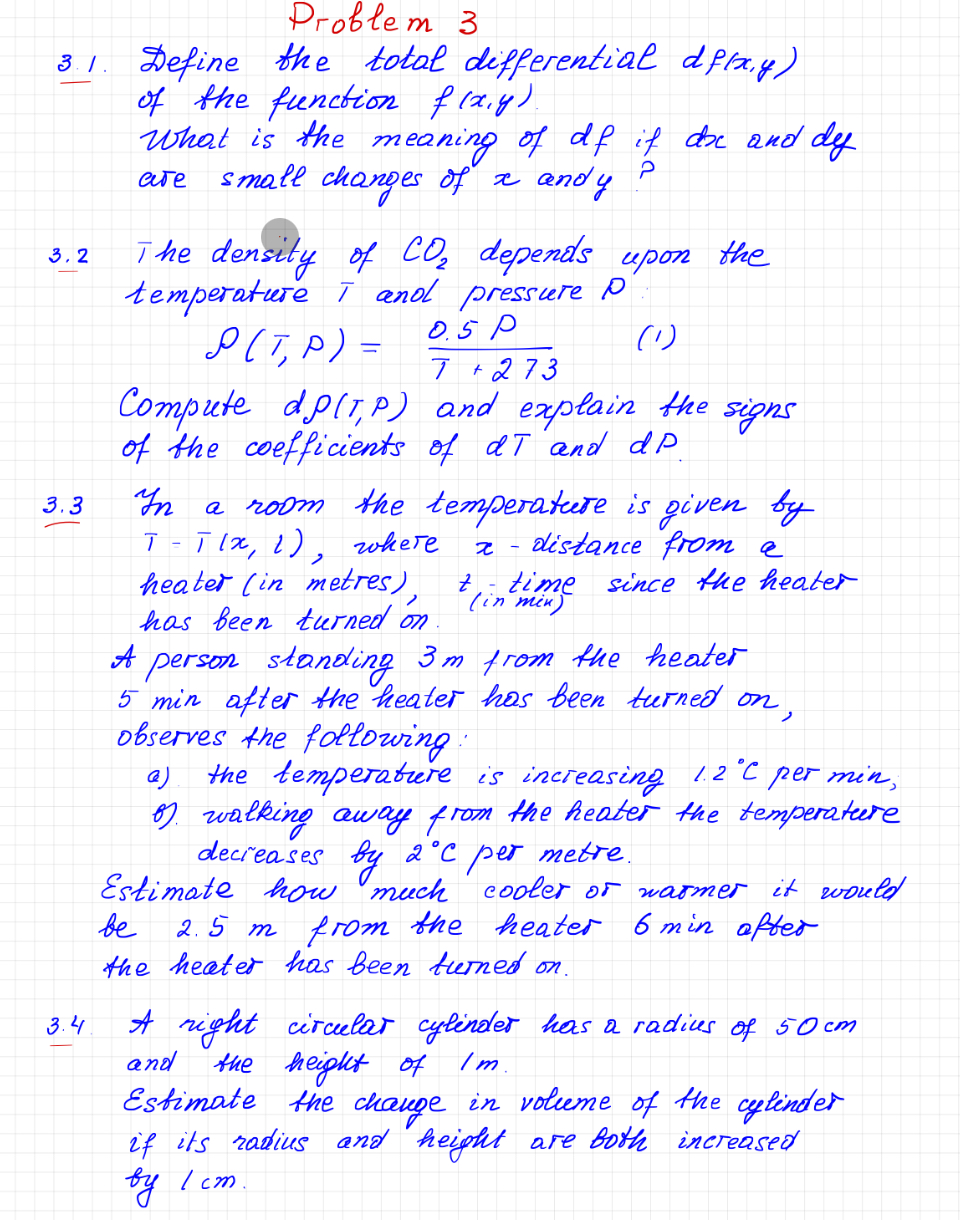 Problem 3
3.1. Define the total differential df(x,y)
of the function f(x,y).
What is the meaning of df if dx and dy
are small changes of x and y ?
3.2 The density of CO₂ depends upon the
temperature T and pressure P :
ρ(T, P) = 0.5 P / T + 273 (1)
Compute dρ(T,P) and explain the signs
of the coefficients of dT and dP.
3.3 In a room the temperature is given by
T - T(x, t), where x - distance from a
heater (in metres), t - time since the heater
(in min)
has been turned on.
A person standing 3 m from the heater
5 min after the heater has been turned on,
observes the following:
a) the temperature is increasing 1.2 °C per min;
b). walking away from the heater the temperature
decreases by 2 °C per metre.
Estimate how much cooler or warmer it would
be 2.5 m from the heater 6 min after
the heater has been turned on.
3.4. A right circular cylinder has a radius of 50 cm
and the height of 1 m.
Estimate the change in volume of the cylinder
if its radius and height are both increased
by 1 cm.